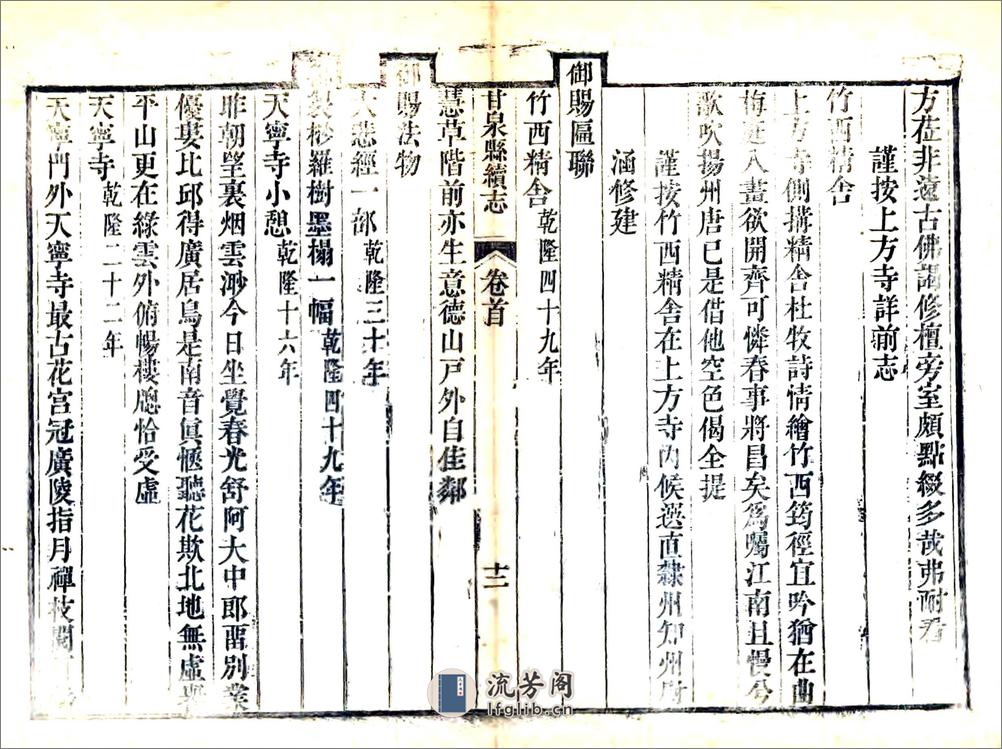 方茈非遠古佛謁修檀旁室頗點綴多哉弗耐看
謹按上方寺詳前志
竹西精舍
上方寺側搆精舍杜牧詩情繪竹西筠徑宜吟猶在曲
梅廷入畫欲開齊可憐春事將昌矣爲囑江南且慢兮
歌吹揚州唐已是借他空色偈全提
謹按竹西精舍在上方寺內候選直隸州知州
涵修建
御賜匾聯
竹西精舍乾隆四十九年
甘泉縣續志 卷首 十二
慧草階前亦生意德山戸外自佳鄰
御賜法物
大悲經一部乾隆三十年
製桫羅樹墨榻一幅乾隆四十九年
天寧寺小憩乾隆十六年
昨朝望裏烟雲渺今日坐覺春光舒阿大中郎畱別業
優婁比邱得廣居鳥是南音眞愜聽花欺北地無虛
平山更在綠雲外俯暢樓牕恰受虛
天寧寺乾隆二十二年
天寧門外天寧寺最古花宮冠廣陵指月禪枝
流芳阁
lfglib.cn